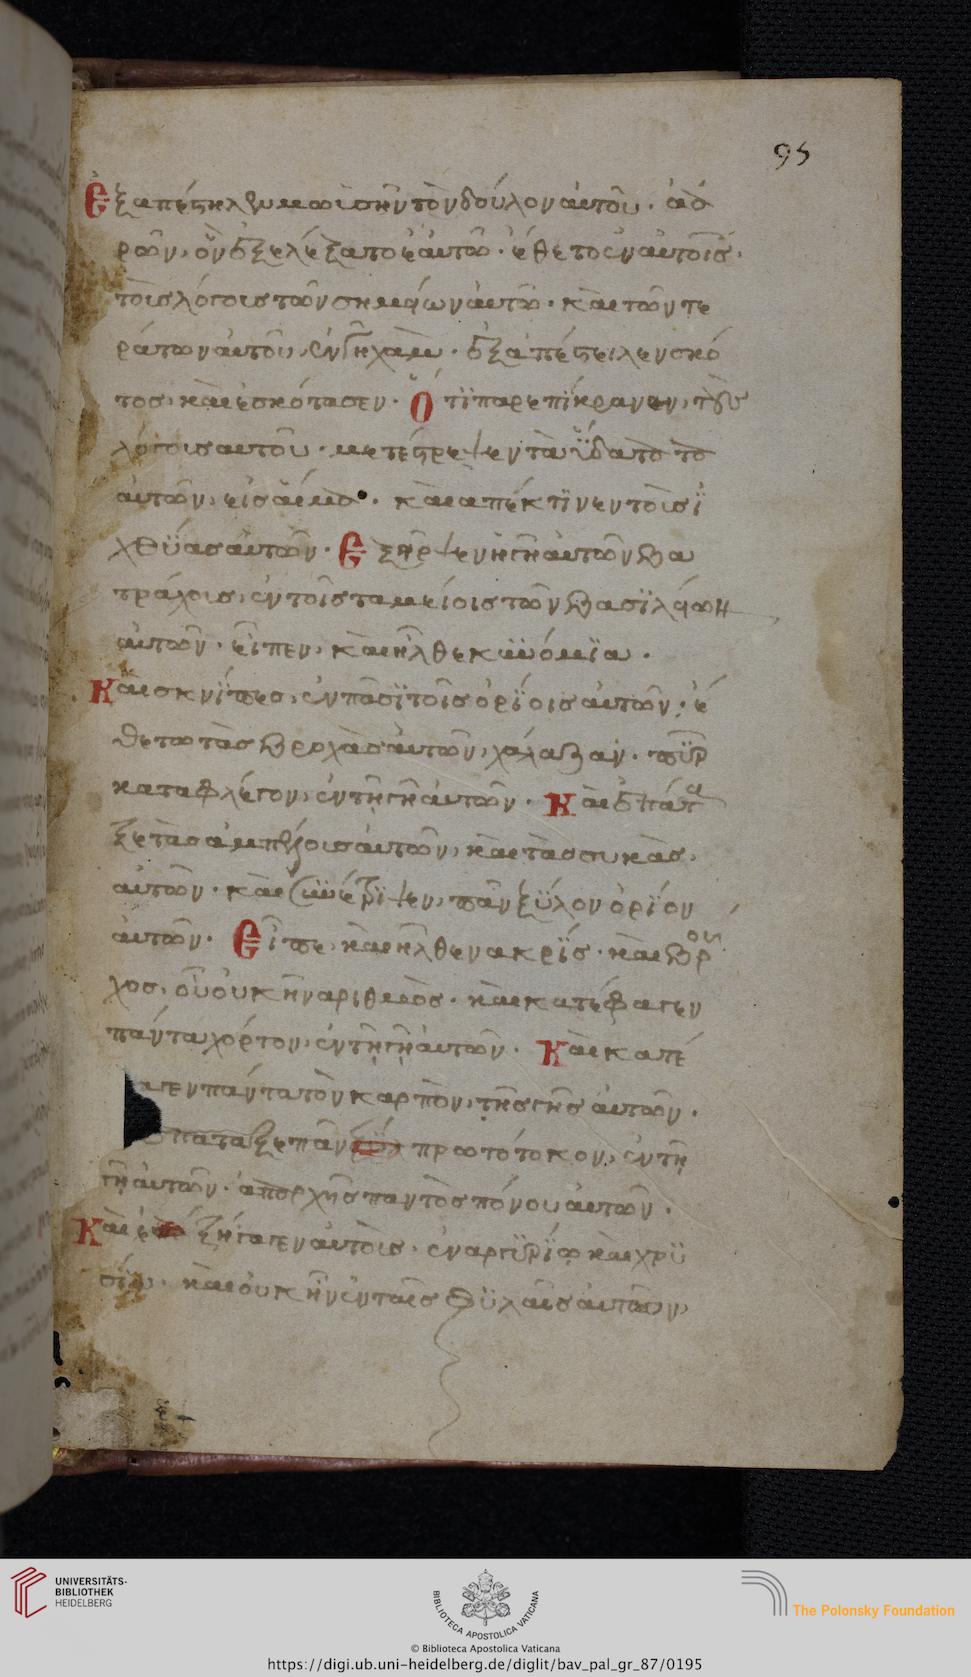 95
Ἐξαπέστηλε μωϊσὴν τὸν δούλον αὐτοῦ · ἀα
ρῶν, ὃν ἐξελέξατο ἑαυτῶ · ἔθετο ἐν αὐτοῖς ·
τοὺς λόγους τῶν σημείων αὐτοῦ · καὶ τῶν τε
ράτων αὐτοῦ, ἐν γῆ χὰμ · ἐξαπέστειλεν σκό
τος, καὶ ἐσκότασεν · Ὅτι παρεπίκραναν, τοὺς
λόγους αὐτοῦ · μετέστρεψεν τὰ ὕδατα
αὐτῶν, εἰς αἵμα · καὶ απέκτϊνεν τοὺς ϊ
χθϋας αὐτῶν · Ἐξῆρψεν ἡ γῆ αὐτῶν βα
τράχους, ἐν τοῖς ταμείοις τῶν βασϊλέων
αὐτῶν · εἶπεν, καὶ ἦλθε κυνόμϊα ·
Καὶ σκνῖπες, ἐν πᾶσϊ τοῖς ὁρϊοις αὐτῶν · ἔ
θετω τὰς βροχὰς αὐτῶν, χάλαζαν · πῦρ
καταφλέγον, ἐν τῆ γῆ αὐτῶν · Καὶ ἐπάτα
ξε τὰς ἀμπέλους αὐτῶν, καὶ τὰς συκὰς,
αὐτῶν · καὶ συνέτρϊψεν, πᾶν ξύλον ὁρϊον
αὐτῶν · Εἶπε, καὶ ἦλθεν ακρϊς · καὶ βροῦ
χος, οὗ οὐκ ἦν αριθμὸς · καὶ κατέφαγεν
πάντα χόρτον, ἐν τῆ γῆ αὐτῶν · Καὶ κατέ
φαγεν πάντα τὸν καρπὸν, τῆς γῆς αὐτῶν ·
επαταξε πᾶν πρωτότοκον, ἐν τῆ
γῆ αὐτῶν · ἀπαρχῆς παντὸς πόνου αὐτῶν ·
Καὶ ἐξήγαγεν αὐτοὺς · ἐν αργϋρϊω καὶ χρϋ
σίω · καὶ οὐκ ἦν ἐν ταῖς φϋλαῖς αὐτῶν,
UNIVERSITÄTS-
BIBLIOTHEK
HEIDELBERG
BIBLIOTECA APOSTOLICA VATICANA
The Polonsky Foundation
© Biblioteca Apostolica Vaticana
https://digi.ub.uni-heidelberg.de/diglit/bav_pal_gr_87/0195